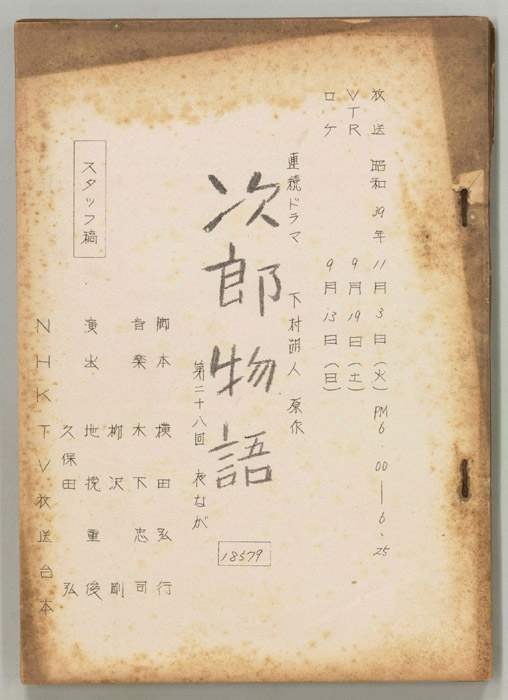 放送 昭和39年11月3日(火)PM6.00―6.25
VTR 9月19日(土)
ロケ 9月13日(日)
連続ドラマ 下村湖人 原作
次郎物語
第二十八回 夜なが
18579
脚本 横田弘行
音楽 木下忠司
柳沢剛
演出 地挽重俊
久保田 弘
スタッフ稿
NHKTV放送台本